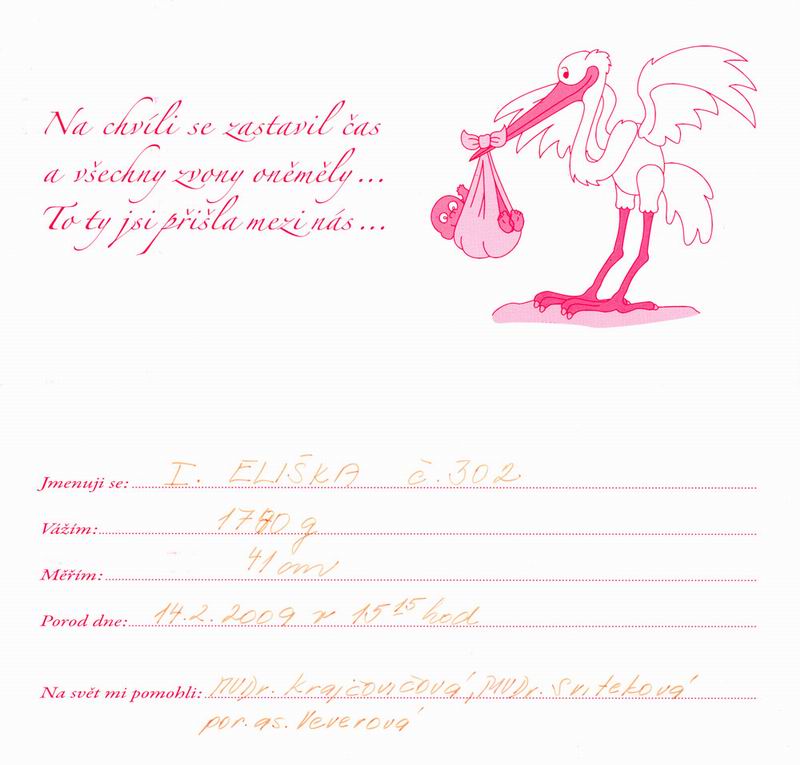 Na chvíli se zastavil čas
a všechny zvony oněměly...
To ty jsi přišla mezi nás...
Jmenuji se: I. ELIŠKA č. 302
Vážím: g
Měřím: 41 cm
Porod dne: 14.2.2009 v 15 15 hod
Na svět mi pomohli: MUDr. Krajčovičová, MUDr. Sviteková
por. as. Veverová